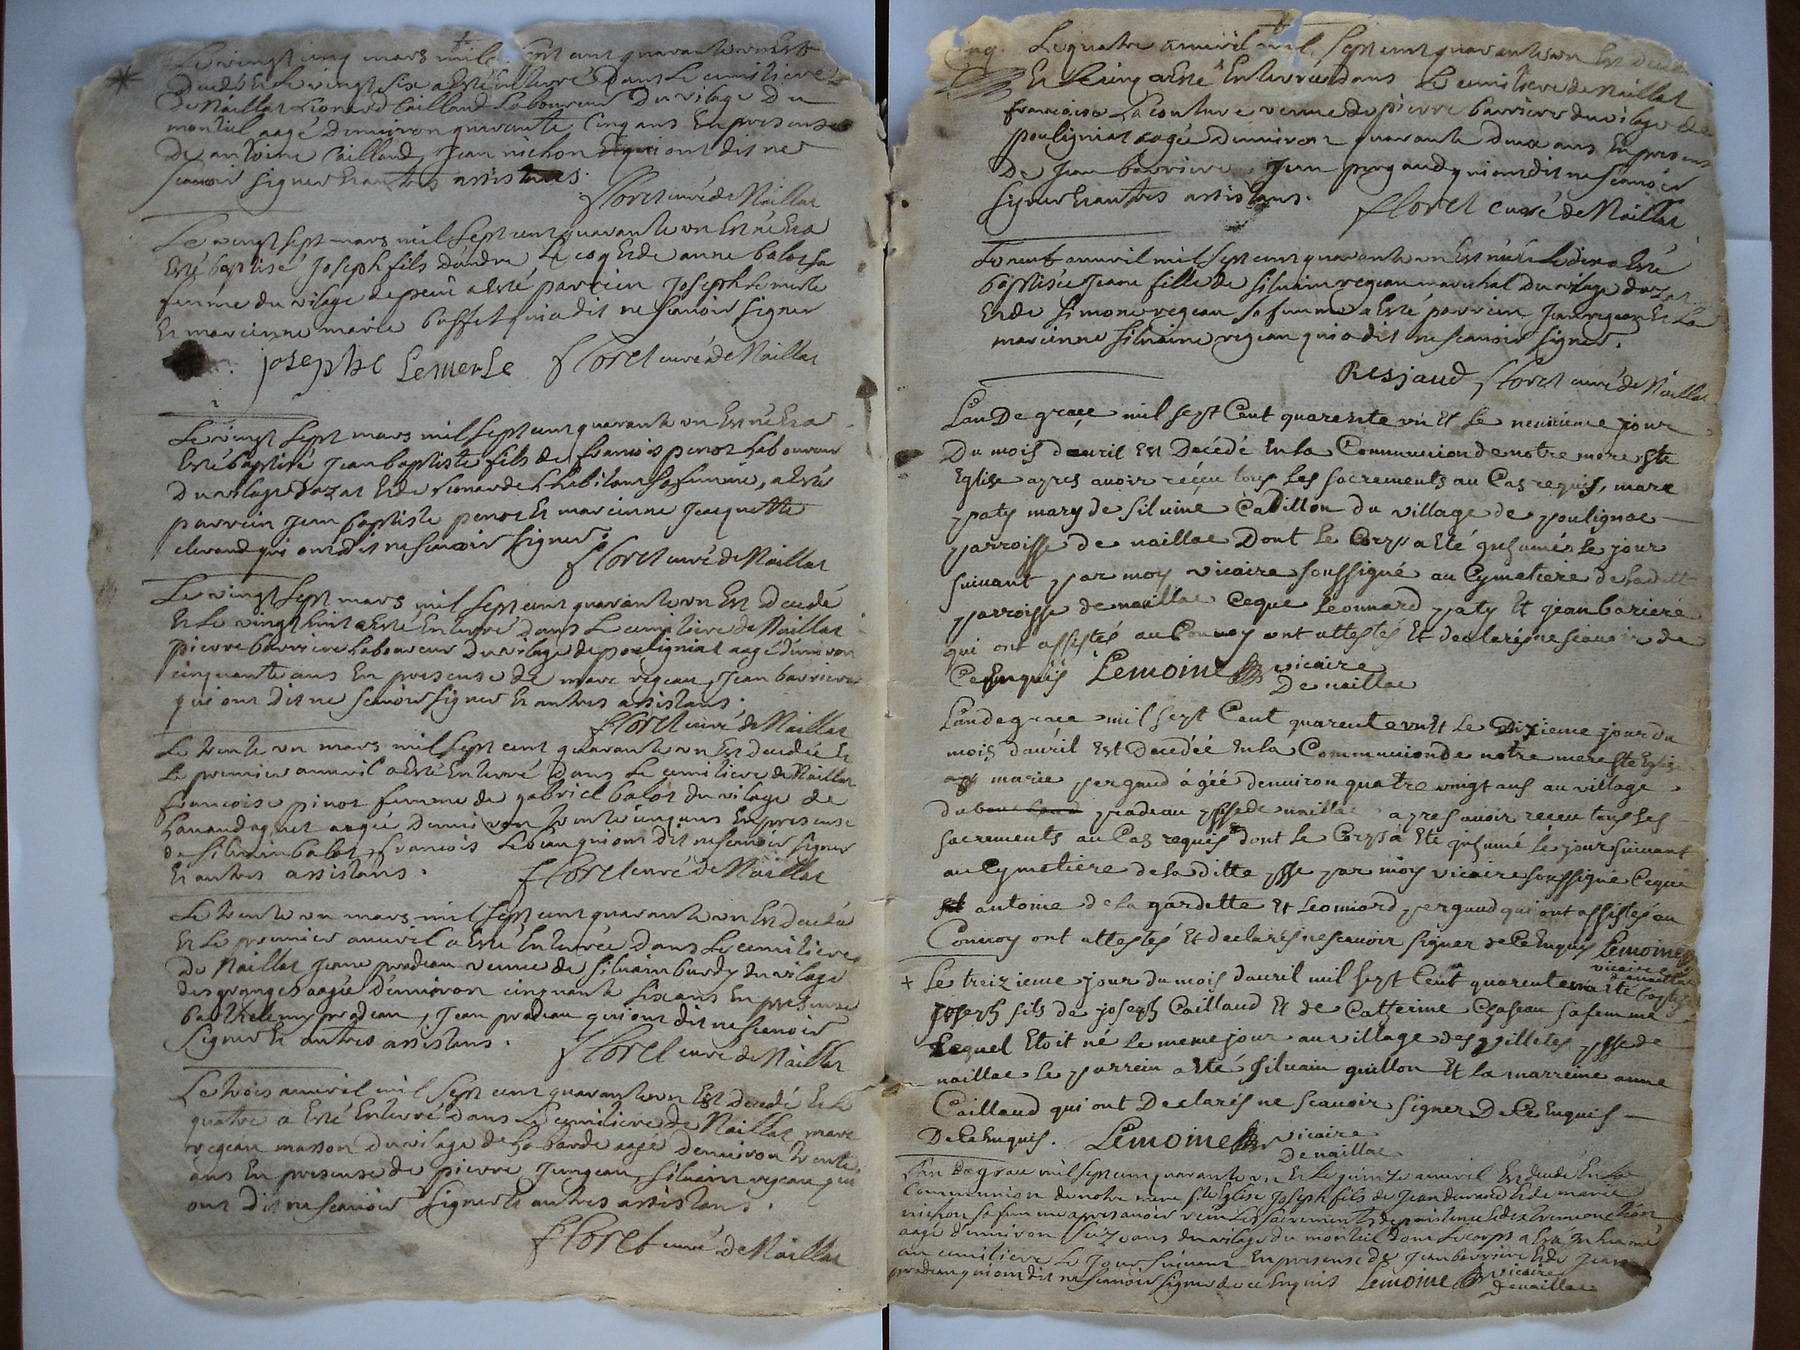 Le vingt cinq mars mile sept cent quarante un Est
decedé et Le vingt six a Esté Enterré dans Le cimitiere
de Naillat Lionard Caillaud Laboureur du vilage du
montiel aagé denviron quarante cinq ans En presense
de antoine Caillaud, Jean nichon qui ont dit ne
scavoir signer Et autres assistans.
floret curé de Naillat
Le vingt sept mars mil sept cent quarante un Est né Et a
Esté baptisé Joseph fils dandre Le coq Et de anne balot sa
femme du vilage de a Esté parrein Joseph Lemerle
Et mareinne marie buffet qui a dit ne scavoir signer
josephe Lemerle floret curé de Naillat
Le vingt sept mars mil sept cent quarante un Est né Et a
Esté baptisé Jean baptiste fils de francois penot Laboureur
du vilage dazat Et de Lionarde sa femme, a Esté
parrein Jean baptiste penot Et mareinne Jacquette
qui ont dit ne scavoir signer.
floret curé de Naillat
Le vingt sept mars mil sept cent quarante un Est decedé
Et Le vingt huit a Esté Enterré dans Le cimitiere de Naillat
pierre barriere Laboureur du vilage de pouligniat aagé denviron
cinquante ans En presense de marc regeau, Jean barriere
qui ont dit ne scavoir signer Et autres assistans.
floret curé de Naillat
Le trente un mars mil sept cent quarante un Est decedée Et
Le premier auvril a Esté Enterré dans Le cimitiere de Naillat
francoise pinot femme de gabriel balot du vilage de
aagée denviron trente cinq ans En presense
de silvain balot, francois Lebeau qui ont dit ne scavoir signer
Et autres assistans.
floret curé de Naillat
Le trente un mars mil sept cent quarante un Est decedée
Et Le premier auvril a Esté Enterrée dans Le cimitiere
de Naillat Jeanne pradeau veuve de silvain burdy du vilage
des granges aagée denviron cinquante six ans En presense
barthelemy pradeau, Jean pradeau qui ont dit ne scavoir
signer Et autres assistans.
floret curé de Naillat
Le trois auvril mil sept cent quarante un Est decedé Et Le
quatre a Esté Enterré dans Le cimitiere de Naillat marc
regeau masson du vilage de La aagé denviron trente
ans En presense de pierre Jungeau, silvain regeau qui
ont dit ne scavoir signer Et autres assistans.
floret curé de Naillat
Le quatre auvril mil sept cent quarante un Est decedée
Et Le cinq a Esté Enterrée dans Le cimitiere de Naillat
francoise La couture veuve de pierre barriere du vilage de
pouligniat aagé denviron quarante deux ans En presense
De Jean barriere, Jean pergaud qui ont dit ne scavoir
signer Et autres assistans. floret curé de Naillat
Le neuf auvril mil sept cent quarante un Est née Le dix a Esté
baptisée Jeane fille de silvain regeau marechal du vilage dazat
Et de simone regeau sa femme a Esté parrein Jean regeau Et La
mareinne silvaine regeau qui a dit ne scavoir signer.
Resjaud, floret curé de Naillat
Lan De grace mil sept Cent quarente un Et Le neuvieme jour
Du mois d avril Est Decédé En la Communion de notre mere ste
Eglise apres avoir réçeu tous Les sacrements au Cas requis, marc
paty mary de silvine Cadillon du village de poulignac
parroisse de naillac Dont Le Corps a Eté jnhumés Le jour
suivant par moy vicaire soussigné au Cymetiere de Laditte
parroisse de naillac Ceque Léonnard paty Et jean bariere
qui ont assistés au Convoy ont attestés Et declarés ne scavoir de
Ce Enquis Lemoine vicaire
De naillac
Lan de grace mil sept Cent quarente un Et Le Dixieme jour du
mois davril Est Decedée En la Communion de notre mere ste Eglise
marie pergaud âgéé denviron quatre vingt ans au village
du pradeau psse de naillac apres avoir receu tous Les
sacrements au Cas requis dont Le Corps à Eté jnhumé Le jour suivant
au Cymetiere de la ditte psse par moy vicaire soussigné Ceque
antoine de la gardette Et Leonnard pergaud qui ont assistés au
Convoy ont attestés Et declarés ne scavoir signer de Ce Enquis Lemoine
vicaire
de naillac
+ Le treizieme jour du mois davril mil sept Cent quarente un a Eté baptisé
joseph fils de joseph Caillaud Et de Catterine Chaseau sa femme
Lequel Etoit né Le meme jour au village des villetes psse de
naillac Le parrein a Eté silvain guillon Et La marreine anne
Caillaud qui ont Declarés ne scavoir signer De Ce Enquis
De Ce Enquis. Lemoine vicaire
de naillac
Lan de grace mil sept cent quarante un Et Le quinze auvril Est decedé En La
Communion de notre mere ste Eglise Joseph fils de Jean durand Et de marie
nichon sa femme apres avoir receu Les sacrements de penitence Et dextremeonction
aagé denviron seize ans du vilage du montiel dont Le corps a Esté Inhumé
au cimitiere Le Jour suivant En presense de Jean barriere Et de Jean
pradeau qui ont dit ne scavoir signer de ce Enquis Lemoine vicaire
Denaillac